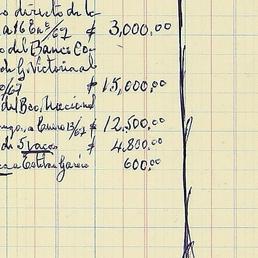 o directo de la
a 16 En⁰/67 $ 3,000,00
o del Banco Co-
de G. Victoria al
0/67 $ 15,000,00
del Bco. Nacional
a Enero 13/67 $ 12,500,00
de 5 vacas $ 4.800,00
a Esteban García 600,00